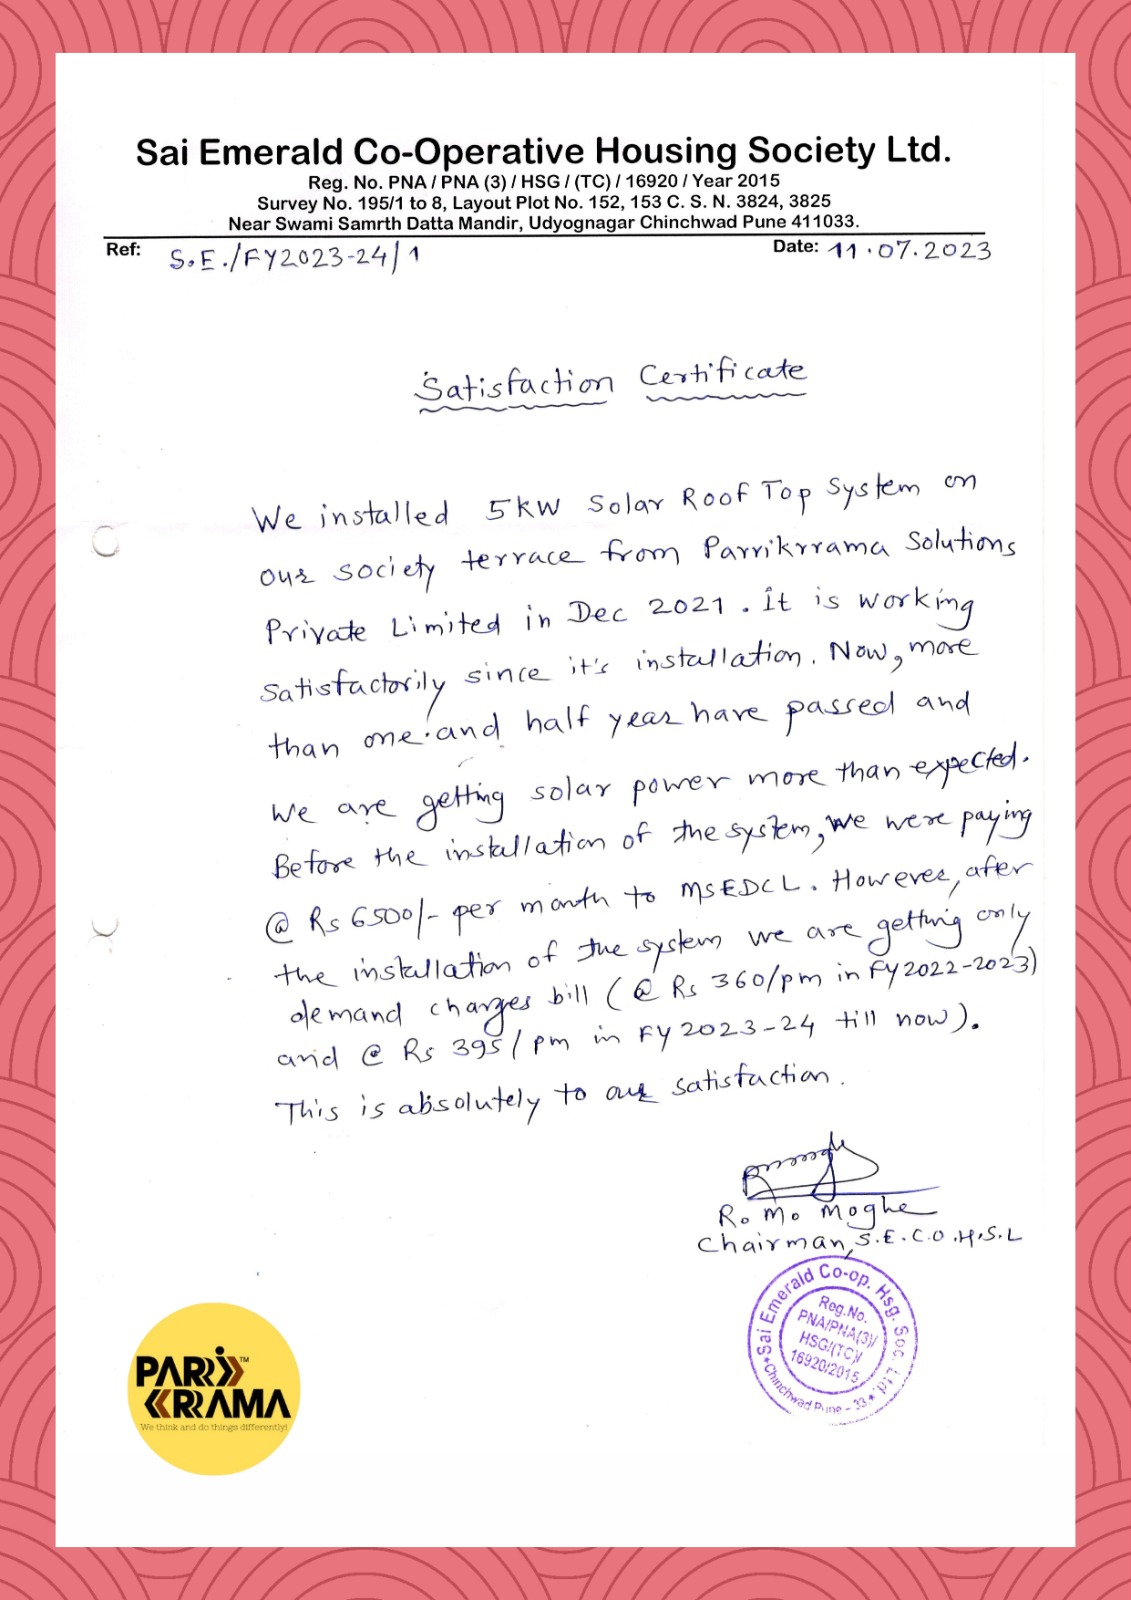 Sai Emerald Co-Operative Housing Society Ltd.
Reg. No. PNA / PNA (3) / HSG / (TC) / 16920 / Year 2015
Survey No. 195/1 to 8, Layout Plot No. 152, 153 C. S. N. 3824, 3825
Near Swami Samrth Datta Mandir, Udyognagar Chinchwad Pune 411033.
Ref: S.E./FY2023-24/1 Date: 11.07.2023
Satisfaction Certificate
We installed 5kW Solar Roof Top System on
our society terrace from Parrikrrama Solutions
Private Limited in Dec 2021. It is working
satisfactorily since it's installation. Now, more
than one and half year have passed and
we are getting solar power more than expected.
Before the installation of the system, we were paying
@ Rs 6500/- per month to MSEDCL. However, after
the installation of the system we are getting only
demand charges bill (@ Rs 360/pm in FY2022-2023)
and @ Rs 395/pm in FY 2023-24 till now).
This is absolutely to our satisfaction.
R. M. Moghe
Chairman, S.E.C.O.H.S.L
Sai Emerald Co-op. Hsg. Soc. Ltd.
Reg.No.
PNA/PNA(3)/
HSG/(TC)/
16920/2015
Chinchwad Pune - 33.
PARRI™
KRRAMA
We think and do things differently!